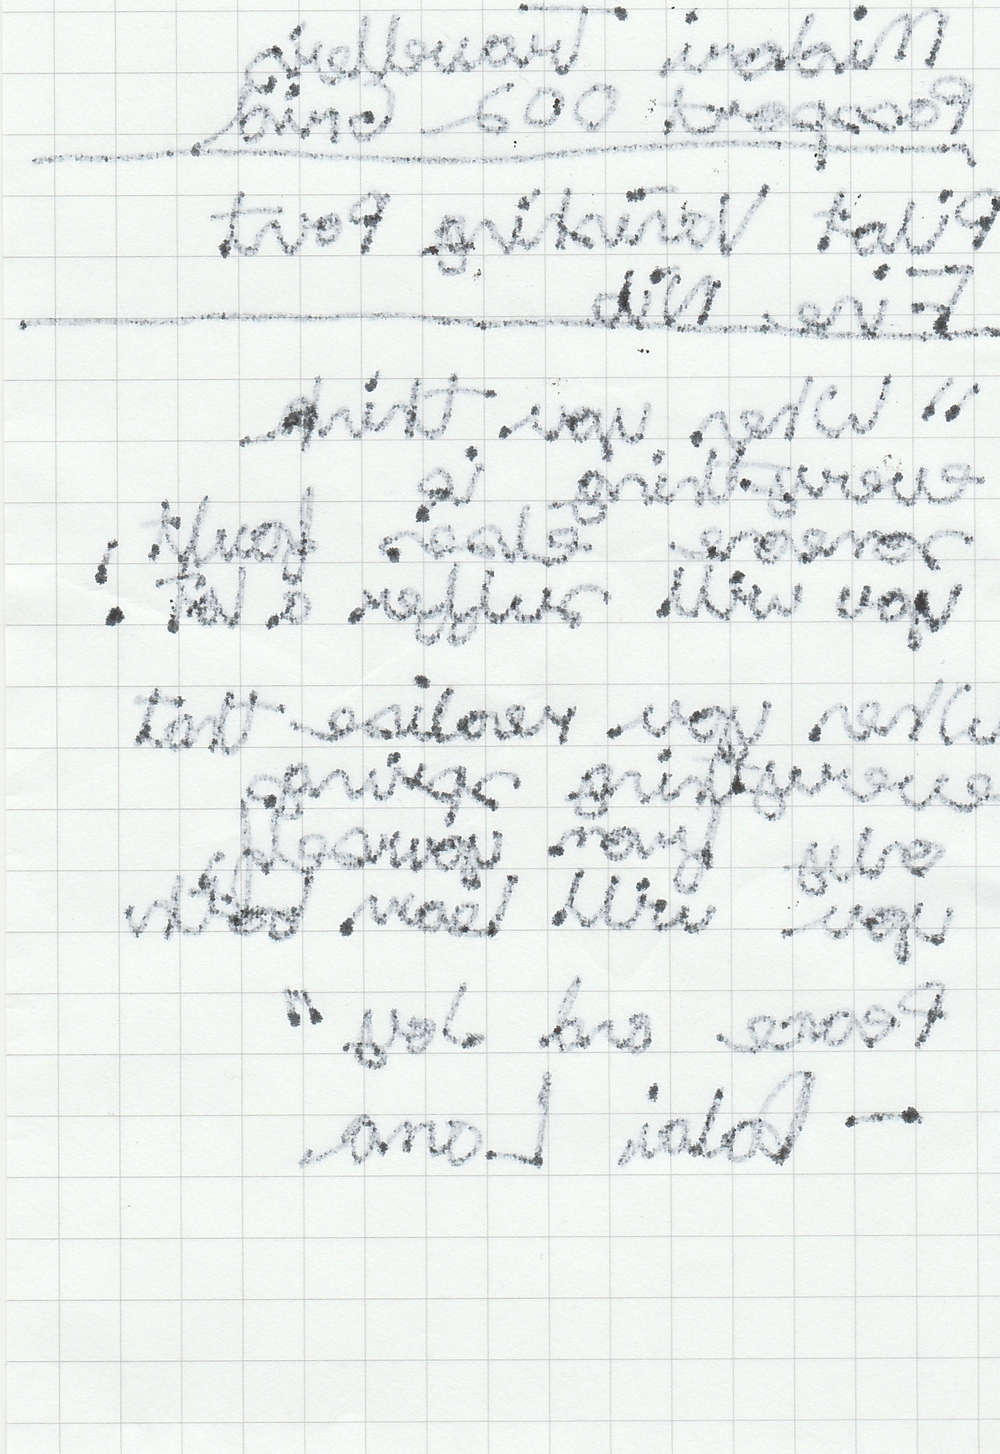 Midori Traveller's
Passport 003 Grid
Pilot Vanishing Point
Fine Nib
"When you think
everything is
someone else's fault,
you will suffer a lot.
When you realise that
everything springs
only from yourself,
you will learn both
Peace and Joy"
— Dalai Lama